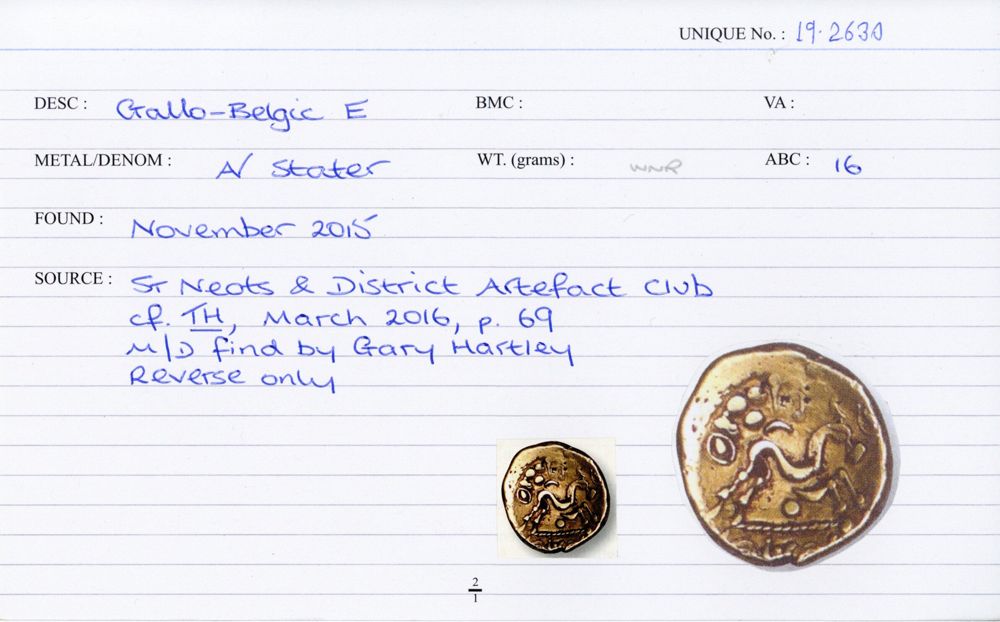 UNIQUE No. : 19.2630
DESC : Gallo-Belgic E BMC : VA :
METAL/DENOM : A/ Stater WT. (grams) : WNR ABC : 16
FOUND : November 2015
SOURCE : ST Neots & District Artefact Club
cf. TH, March 2016, p. 69
M/D find by Gary Hartley
Reverse only
2
1